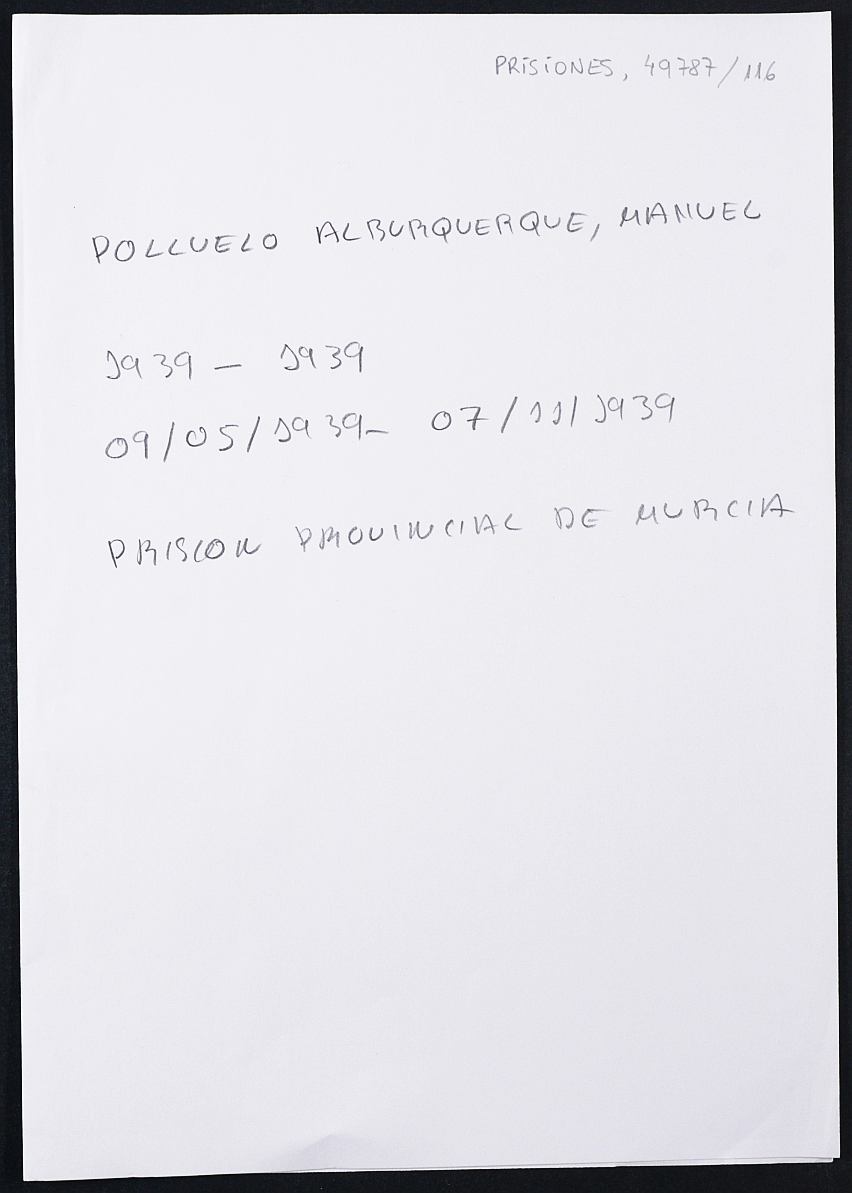 PRISIONES, 49787/116
POLLUELO ALBURQUERQUE, MANUEL
1939 - 1939
09/05/1939- 07/11/1939
PRISION PROVINCIAL DE MURCIA